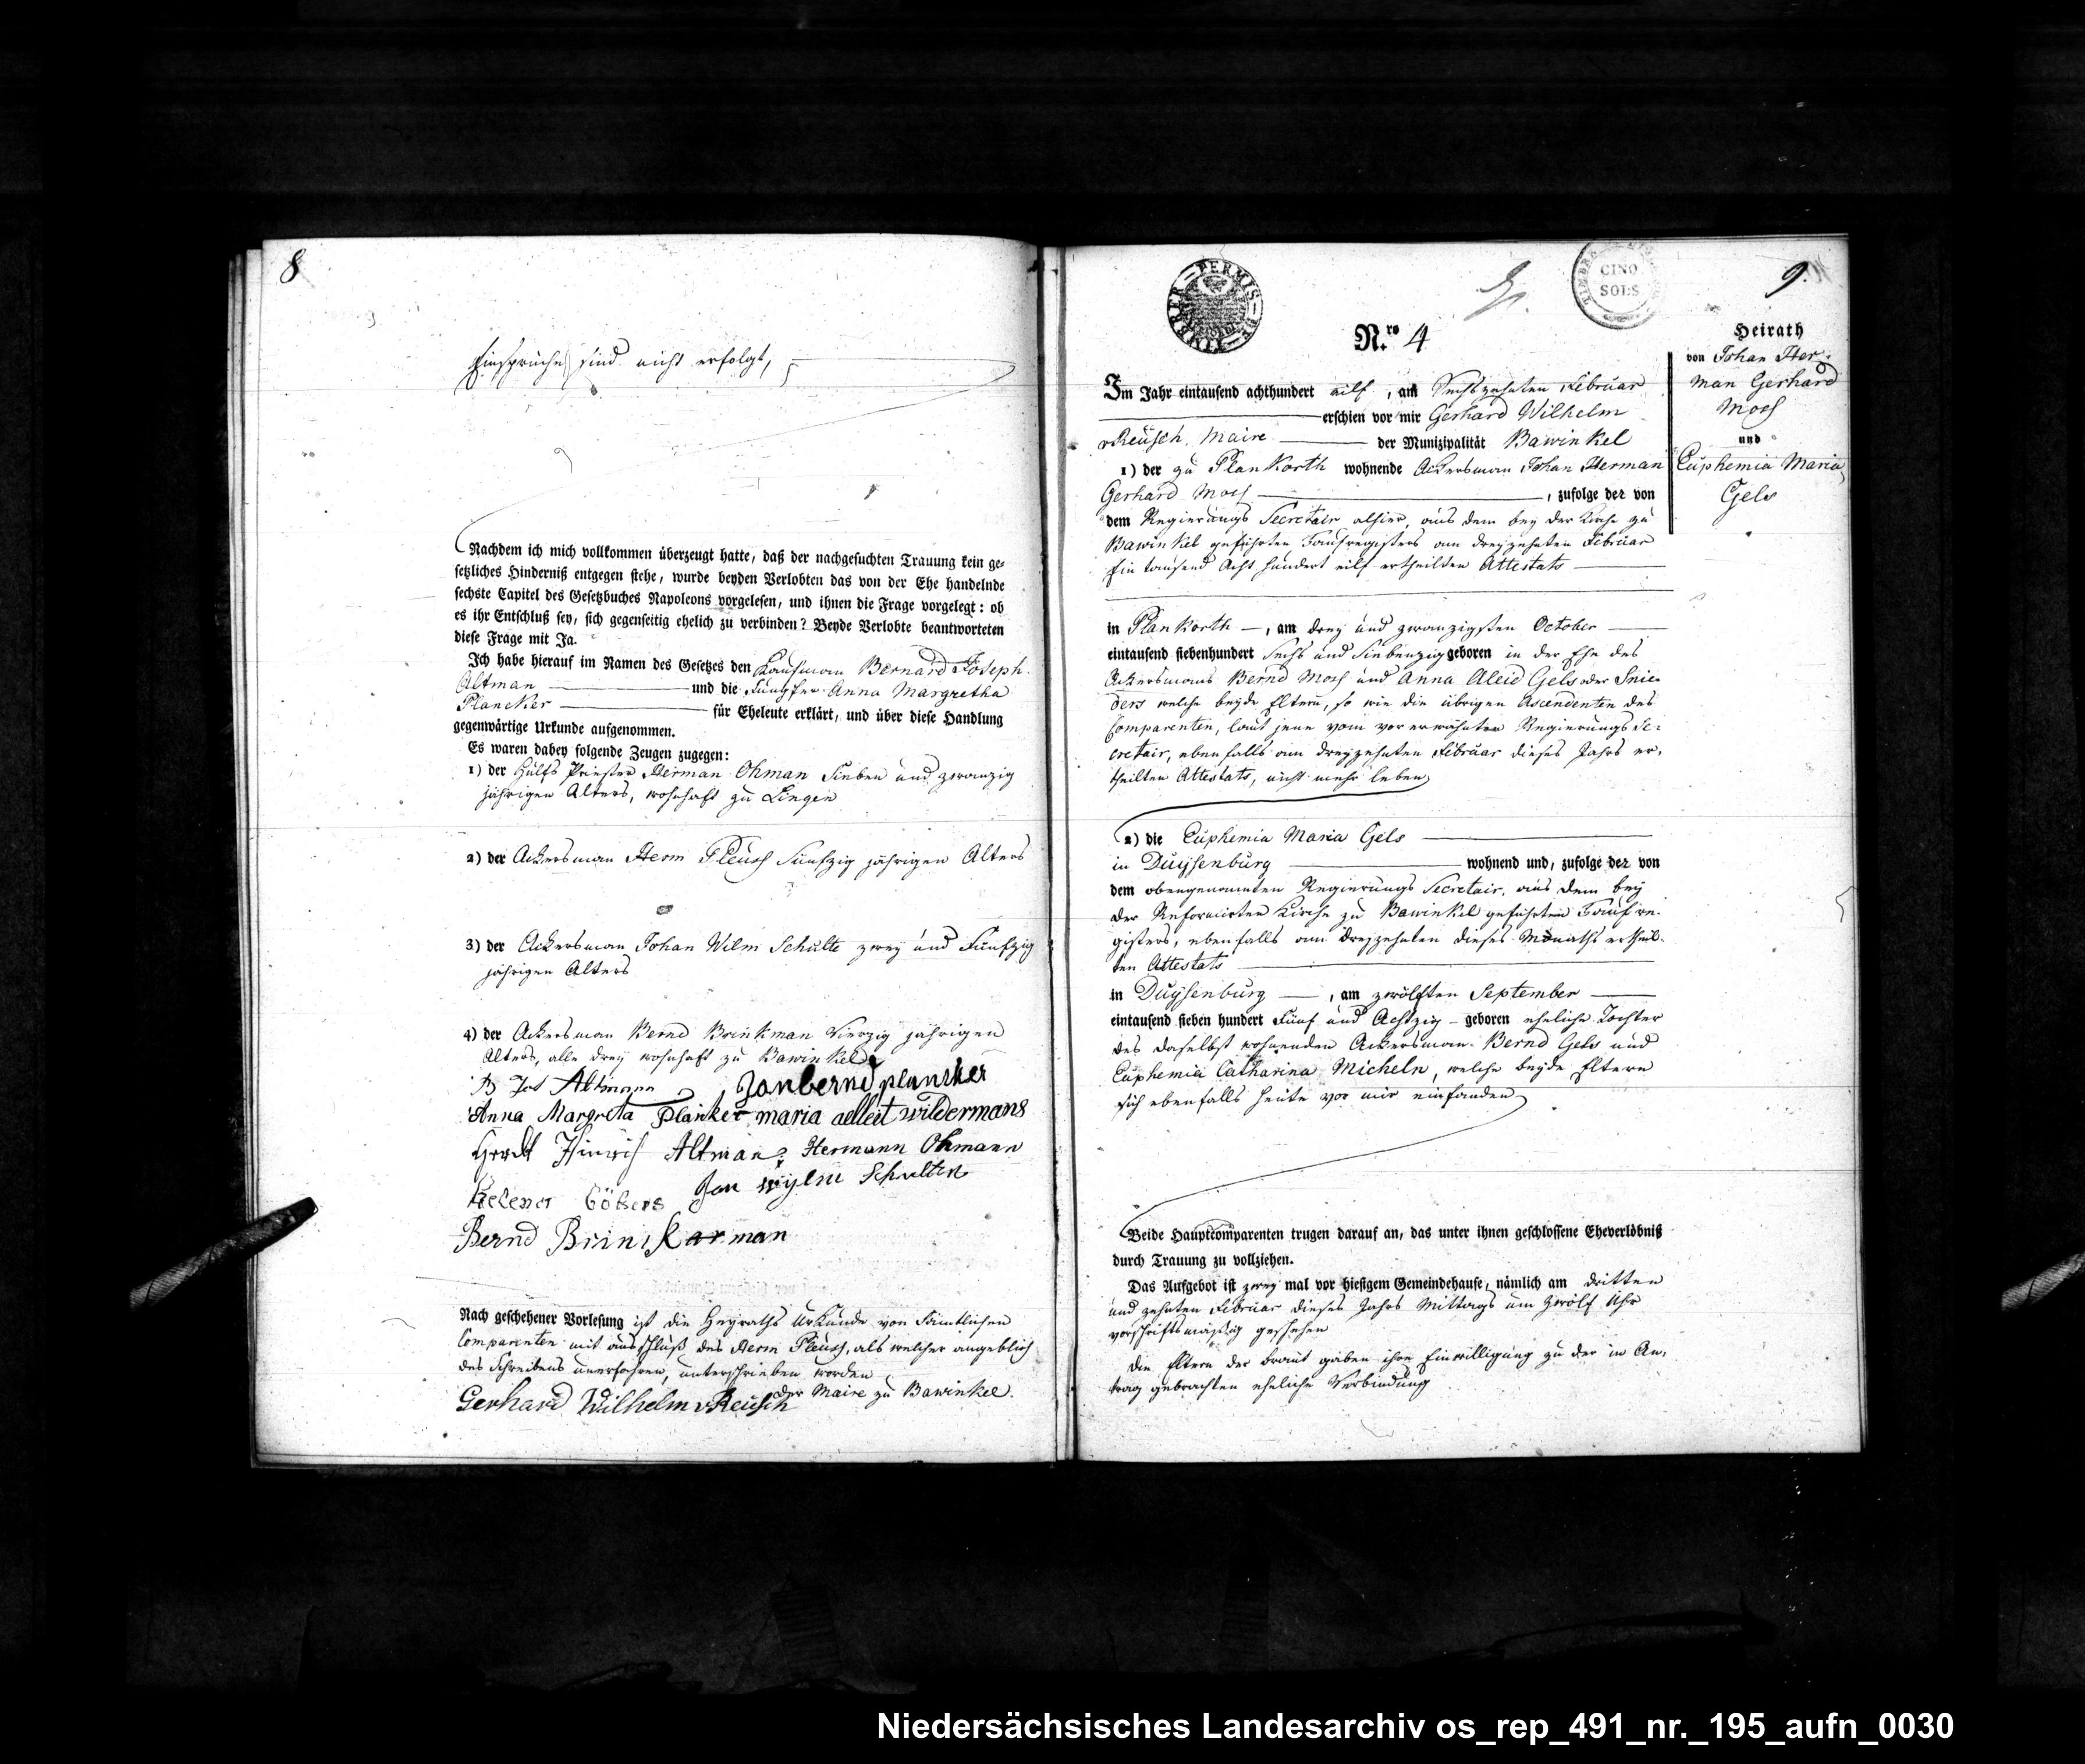 8
Einsprüche sind nicht erfolgt,
Nachdem ich mich vollkommen überzeugt hatte, daß der nachgesuchten Trauung kein ge=
setzliches Hinderniß entgegen stehe, wurde beyden Verlobten das von der Ehe handelnde
sechste Capitel des Gesetzbuches Napoleons vorgelesen, und ihnen die Frage vorgelegt: ob
es ihr Entschluß sey, sich gegenseitig ehelich zu verbinden? Beyde Verlobte beantworteten
diese Frage mit Ja.
Ich habe hierauf im Namen des Gesetzes den Kaufman Bernard Joseph
Altman und die Jungfer Anna Margretha
Plancker für Eheleute erklärt, und über diese Handlung
gegenwärtige Urkunde aufgenommen.
Es waren dabey folgende Zeugen zugegen:
1) der Hülfs Priester Herman Ohman Sieben und zwanzig
jährigen Alters, wohnhaft zu Lingen
2) der Ackersman Herm Pleusch Fünfzig jährigen Alters
3) der Ackersman Johan Wilm Schulte zwey und Fünfzig
jährigen Alters
4) der Ackersman Bernd Brinkman Vierzig jährigen
Alters, alle drey wohnhaft zu Bawinkel
B Jos Altmann Janbernd plancker
Anna Margreta Planker maria aelleit wildermans
Gerdt Hinrich Altman Hermann Ohmann
Helena Jan wylm Schulten
Bernd Brinkarman
Nach geschehener Vorlesung ist die Heyraths Urkunde von Sämtlichen
Comparenten mit ausschluß des Herm Pleusch, als welcher angeblich
des Schreibens unerfahren, unterschrieben worden
der Maire zu Bawinkel.
Gerhard Wilhelm vReusch
TIMBRER PERMIS DE
TIMBRE
CINQ
SOLS
9.
N.ro 4
Heirath
von Johan Her=
man Gerhard
Mosch
und
Euphemia Maria
Gels
Im Jahr eintausend achthundert eilf, am Sechszehnten Februar
erschien vor mir Gerhard Wilhelm
vReusch Maire der Munizipalität Bawinkel
1) der zu Plankorth wohnende Ackersman Johan Herman
Gerhard Mosch, zufolge der von
dem Regierungs Secretair alhier, aus dem bey der Kirche zu
Bawinkel geführten Taufregisters am dreyzehnten Februar
Ein tausend Acht hundert eilf ertheilten Attestats
in Plankorth, am drey und zwanzigsten October
eintausend siebenhundert Sechs und Siebenzig geboren in der Ehe des
Ackersmans Bernd Mosch und Anna Aleid Gels oder Snie=
ders welche beyde Eltern, so wie die übrigen Ascendenten des
Comparenten, laut jene vom vor erwähnten Regierungs Se=
cretair, ebenfalls am dreyzehnten Februar dieses Jahrs er=
theilten Attestats, nicht mehr leben
2) die Euphemia Maria Gels
in Duysenburg wohnend und, zufolge der von
dem obengenannten Regierungs Secretair, aus dem bey
der Reformirten Kirche zu Bawinkel geführten Taufre=
gisters, ebenfalls am dreyzehnten dieses Monaths ertheil=
ten Attestats
in Duysenburg, am zwölften September
eintausend sieben hundert Fünf und Achtzig geboren eheliche Tochter
des daselbst wohnenden Ackersman Bernd Gels und
Euphemia Catharina Micheln, welche beyde Eltern
sich ebenfalls heute vor mir einfanden
Beide Hauptcomparenten trugen darauf an, das unter ihnen geschlossene Eheverlöbniß
durch Trauung zu vollziehen.
Das Aufgebot ist zwey mal vor hiesigem Gemeindehause, nämlich am dritten
und zehnten Februar dieses Jahrs Mittags um Zwölf Uhr
vorschriftsmäßig geschehen
Die Eltern der Braut gaben ihre Einwilligung zu der in An=
trag gebrachten eheliche Verbindung
Niedersächsisches Landesarchiv os_rep_491_nr._195_aufn_0030